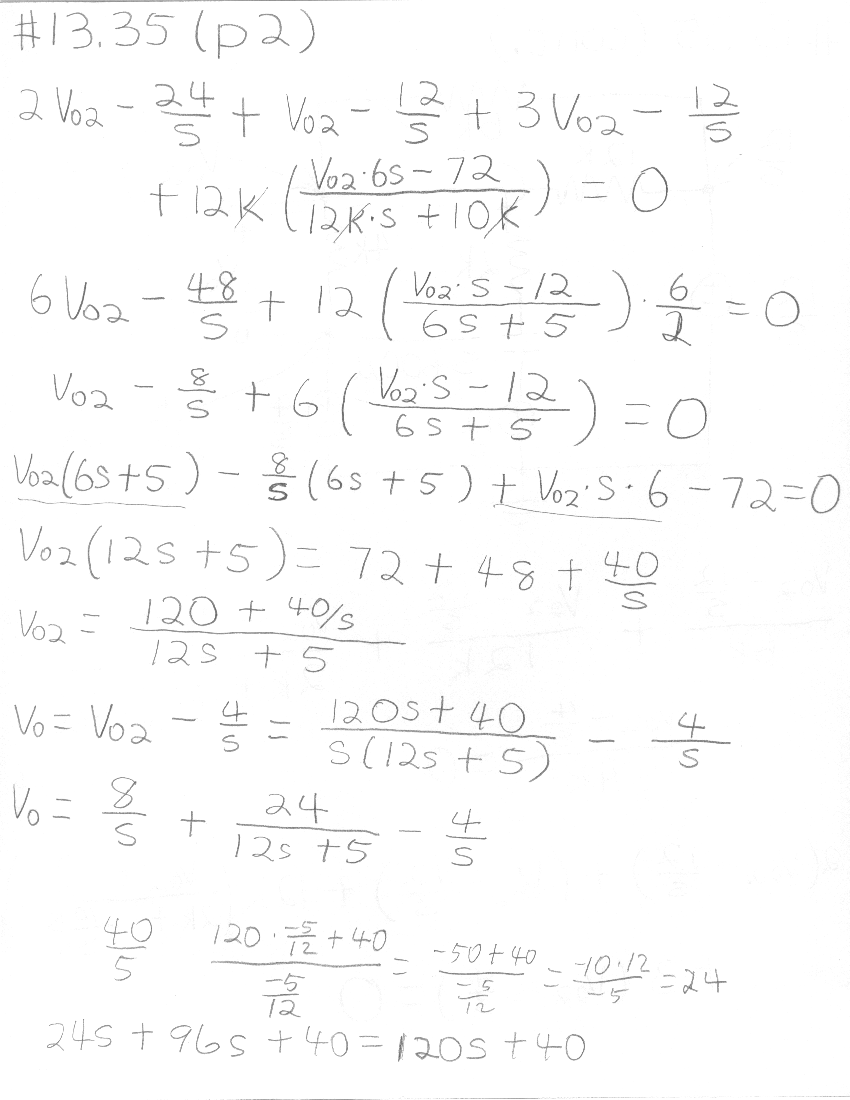 #13.35 (p2)
2V02 - 24/s + V02 - 12/s + 3V02 - 12/s
+ 12K ( (V02·6s - 72) / (12K·s + 10K) ) = 0
6V02 - 48/s + 12 ( (V02·s - 12) / (6s + 5) ) · 6/2 = 0
V02 - 8/s + 6 ( (V02·s - 12) / (6s + 5) ) = 0
V02(6s+5) - 8/s (6s + 5) + V02·s·6 - 72 = 0
V02(12s + 5) = 72 + 48 + 40/s
V02 = (120 + 40/s) / (12s + 5)
V0 = V02 - 4/s = (120s + 40) / (s(12s + 5)) - 4/s
V0 = 8/s + 24/(12s + 5) - 4/s
40/5 (120 · -5/12 + 40) / (-5/12) = (-50 + 40) / (-5/12) = (-10·12) / -5 = 24
24s + 96s + 40 = 120s + 40